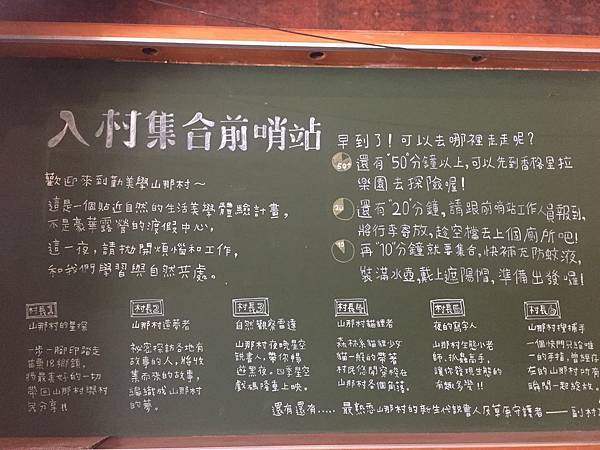 入村集合前哨站
歡迎來到勤美學山那村～
這是一個貼近自然的生活美學體驗計畫，
不是豪華露營的渡假中心，
這一夜，請拋開煩惱和工作，
和我們學習與自然共處。
早到了！可以去哪裡走走呢？
50分
還有"50"分鐘以上，可以先到香格里拉
樂園去探險喔！
20
還有"20"分鐘，請跟前哨站工作人員報到，
將行李寄放，趁空檔去上個廁所吧！
10
再"10"分鐘就要集合，快補充防蚊液，
裝滿水壺，戴上遮陽帽，準備出發囉！
村長1
山那村的星探
一步一腳印踏走
苗栗18鄉鎮，
將最美好的一切
帶回山那村與村
民分享！！
村長2
山那村造夢者
秘密探訪各地有
故事的人，將收
集而來的故事，
編織成山那村
的夢。
村長3
自然觀察雷達
山那村夜晚星空
說書人，帶你暢
遊黑夜。四季星空
戲碼隆重上映。
村長4
山那村貓裡者
森林系貓錢少女
貓一般的帶著
村民悠閒穿梭在
山那村各個角落。
村長5
夜的寫字人
山那村生態小老
師，抓蟲高手，
讓你發現生態的
有趣多學！！
山那村捕手
一個快門只給唯
一的幸福，曾經存
在的山那村所有
瞬間一起綻放。
還有還有..... 最熟悉山那村的新生代說書人及草原守護者——副村